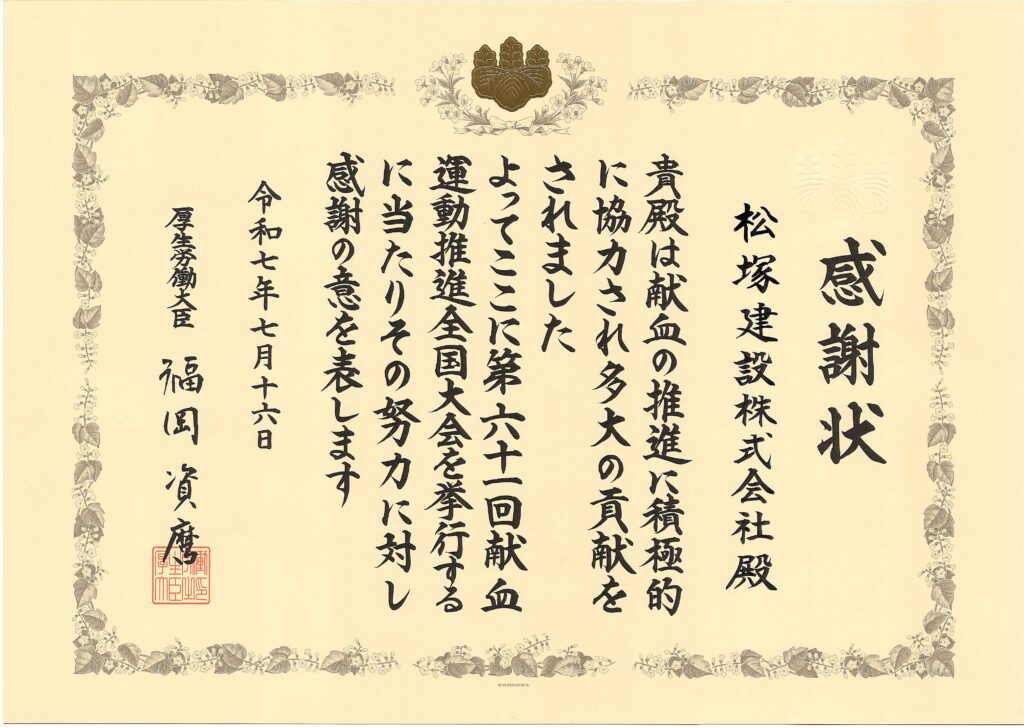 感謝状
松塚建設株式会社殿
貴殿は献血の推進に積極的
に協力され多大の貢献を
されました
よってここに第六十一回献血
運動推進全国大会を挙行する
に当たりその努力に対し
感謝の意を表します
令和七年七月十六日
厚生労働大臣 福岡資麿